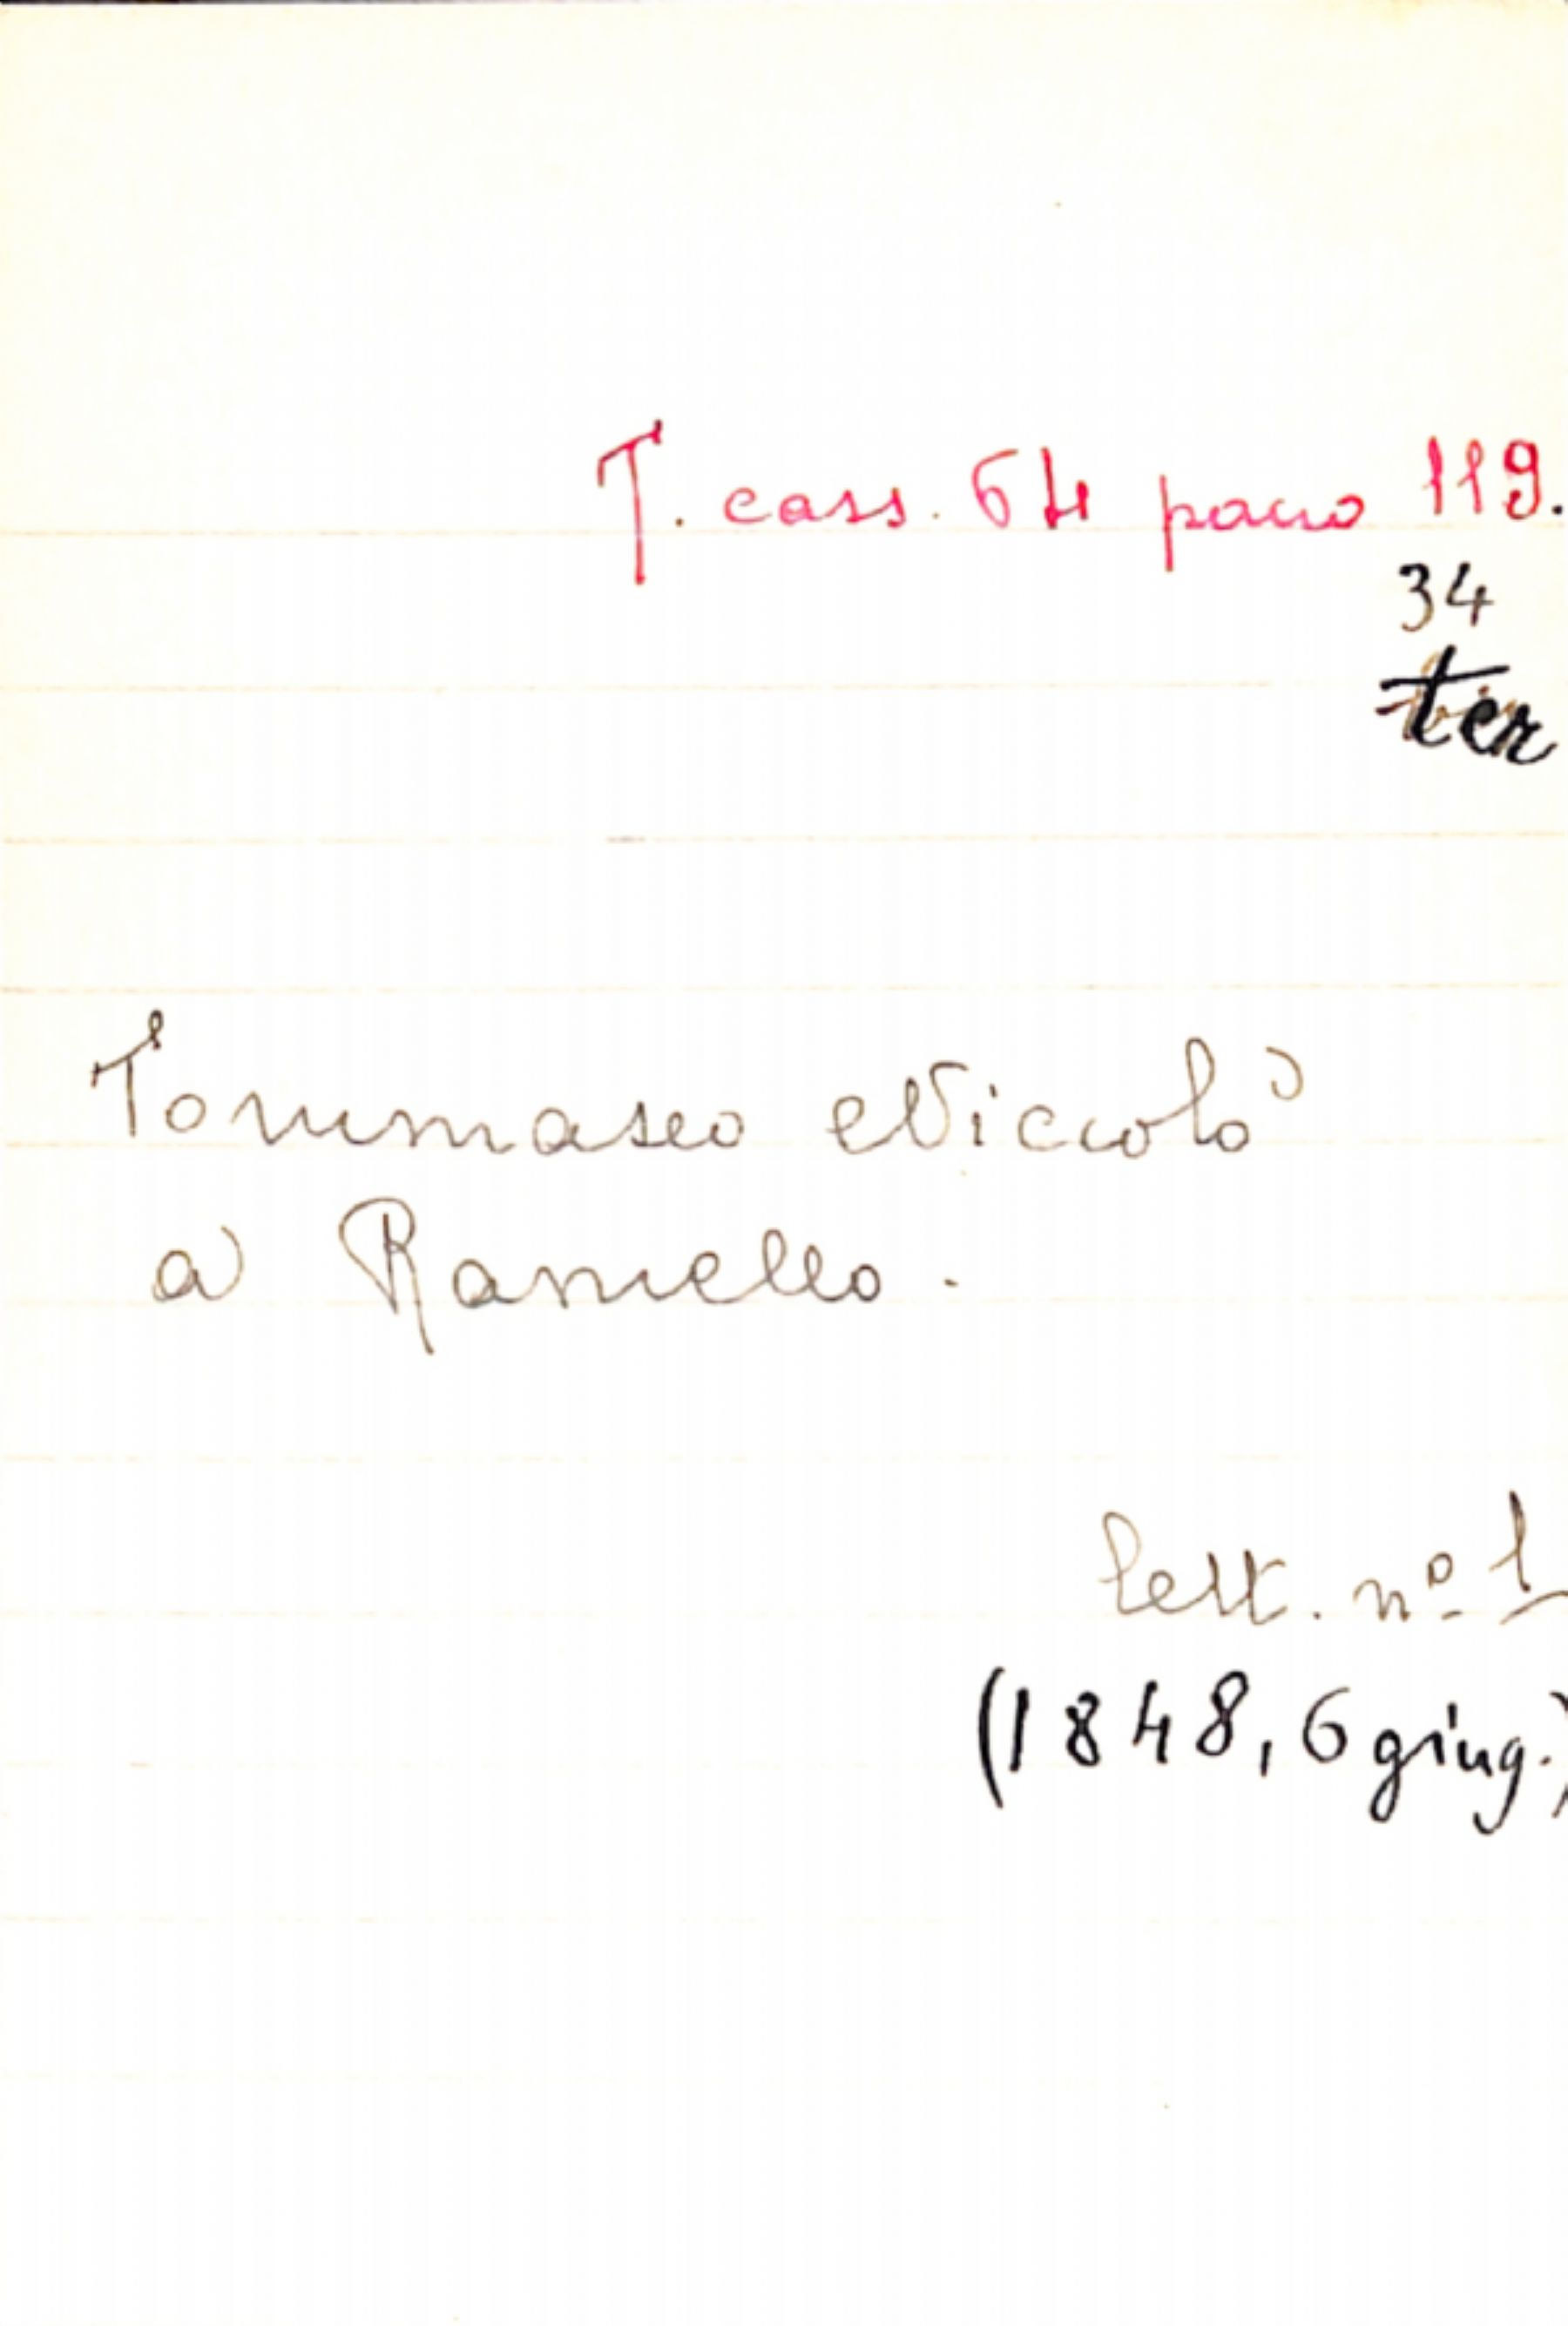 T. cass. 64 pacco 119.
34
ter
Tommaseo Niccolò
a Ramello.
lett. nº 1
(1848, 6 giug.)